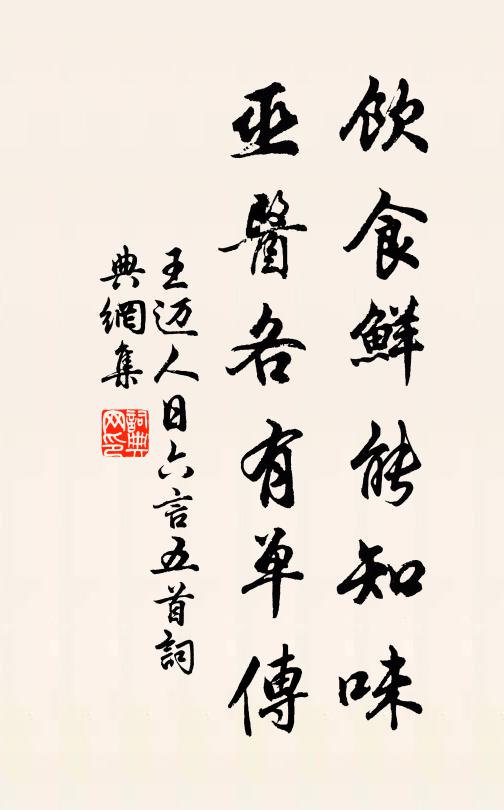 飲食鮮能知味
巫醫各有单傳
王迈人日六言五首詞
典網集
詞典網印